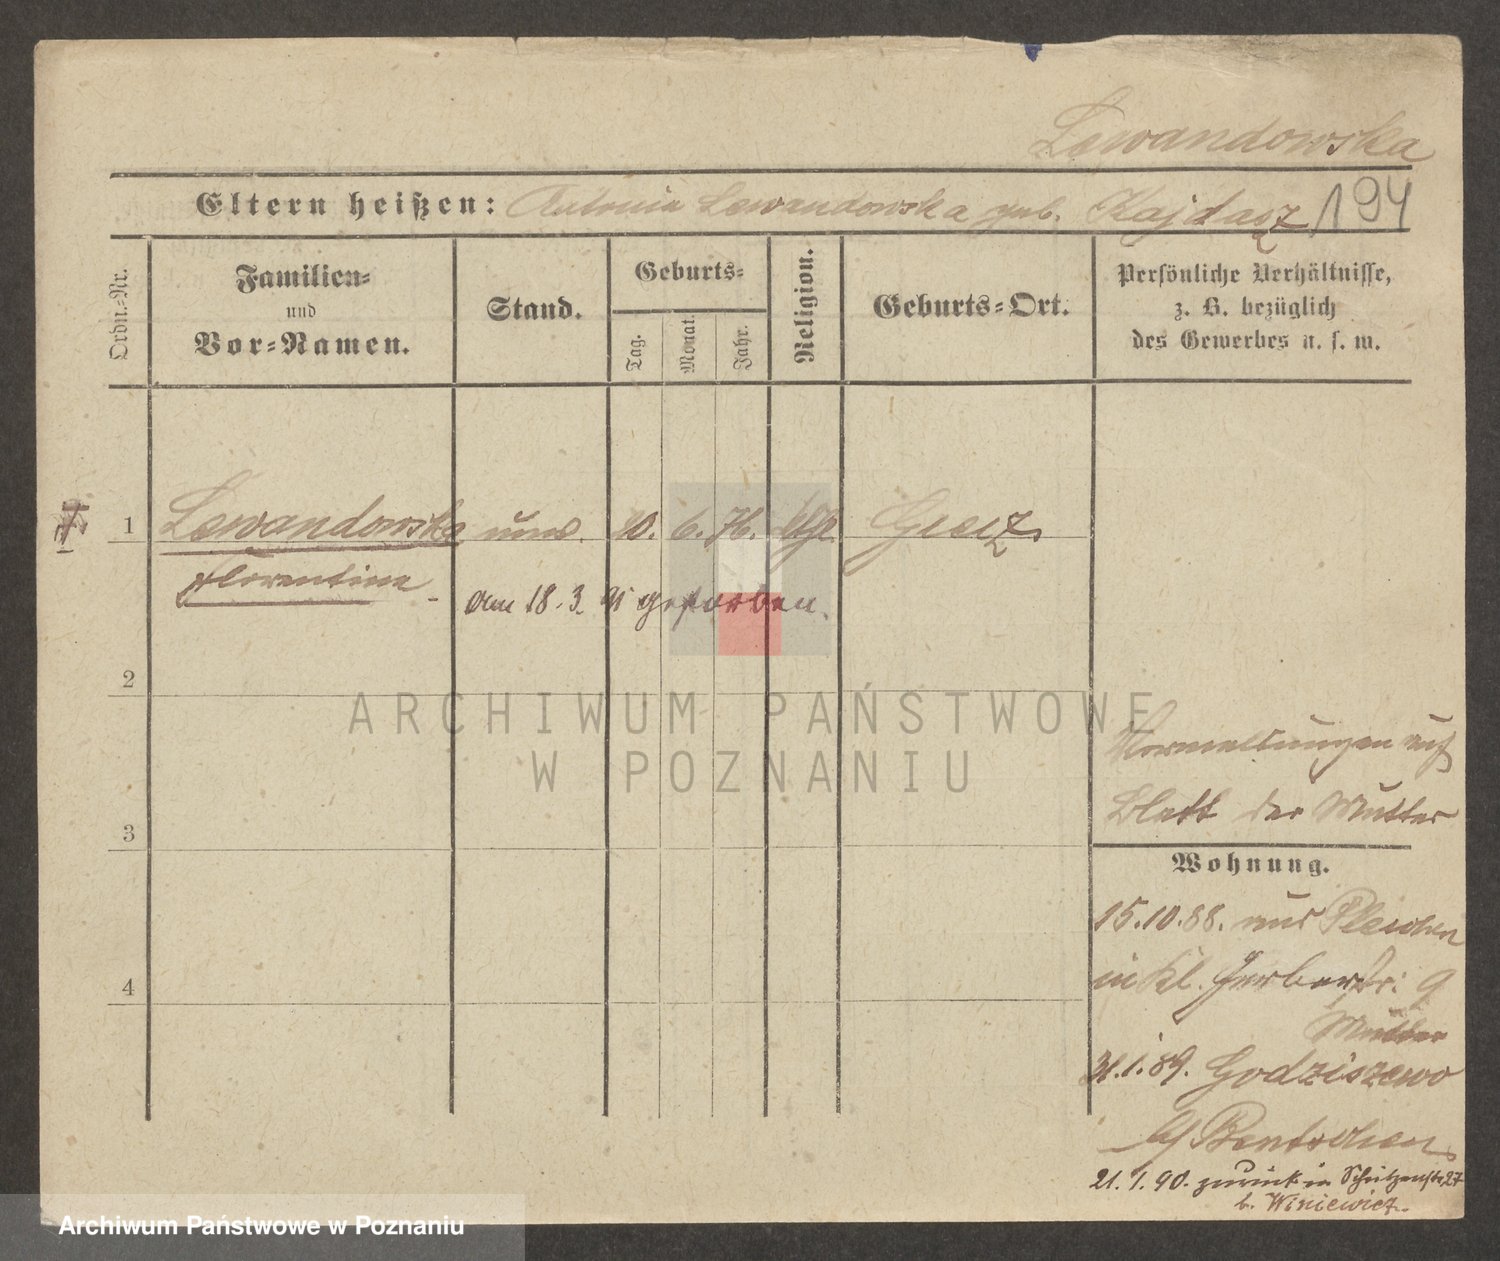 Lewandowska
Eltern heißen: Antonia Lewandowska geb. Kajdasz 194
Ordn.-Nr.
Familien-
und
Vor-Namen.
Stand.
Geburts-
Tag.
Monat.
Jahr.
Religion.
Geburts-Ort.
Persönliche Verhältnisse,
z. B. bezüglich
des Gewerbes u. s. w.
1 Lewandowska 6. 76.
Florentine
am 18.3. gestorben.
2
3
4
Vormeldungen auf
Blatt der Mutter
Wohnung.
15.10.88. aus Pleschen
in Kl. Gerberstr: 9
Mutter
31.1.89. Godziszewo
Bentschen
21.1.90. zurück in Schützenstr 27
b. Winiewicz.
ARCHIWUM PAŃSTWOWE
W POZNANIU
Archiwum Państwowe w Poznaniu